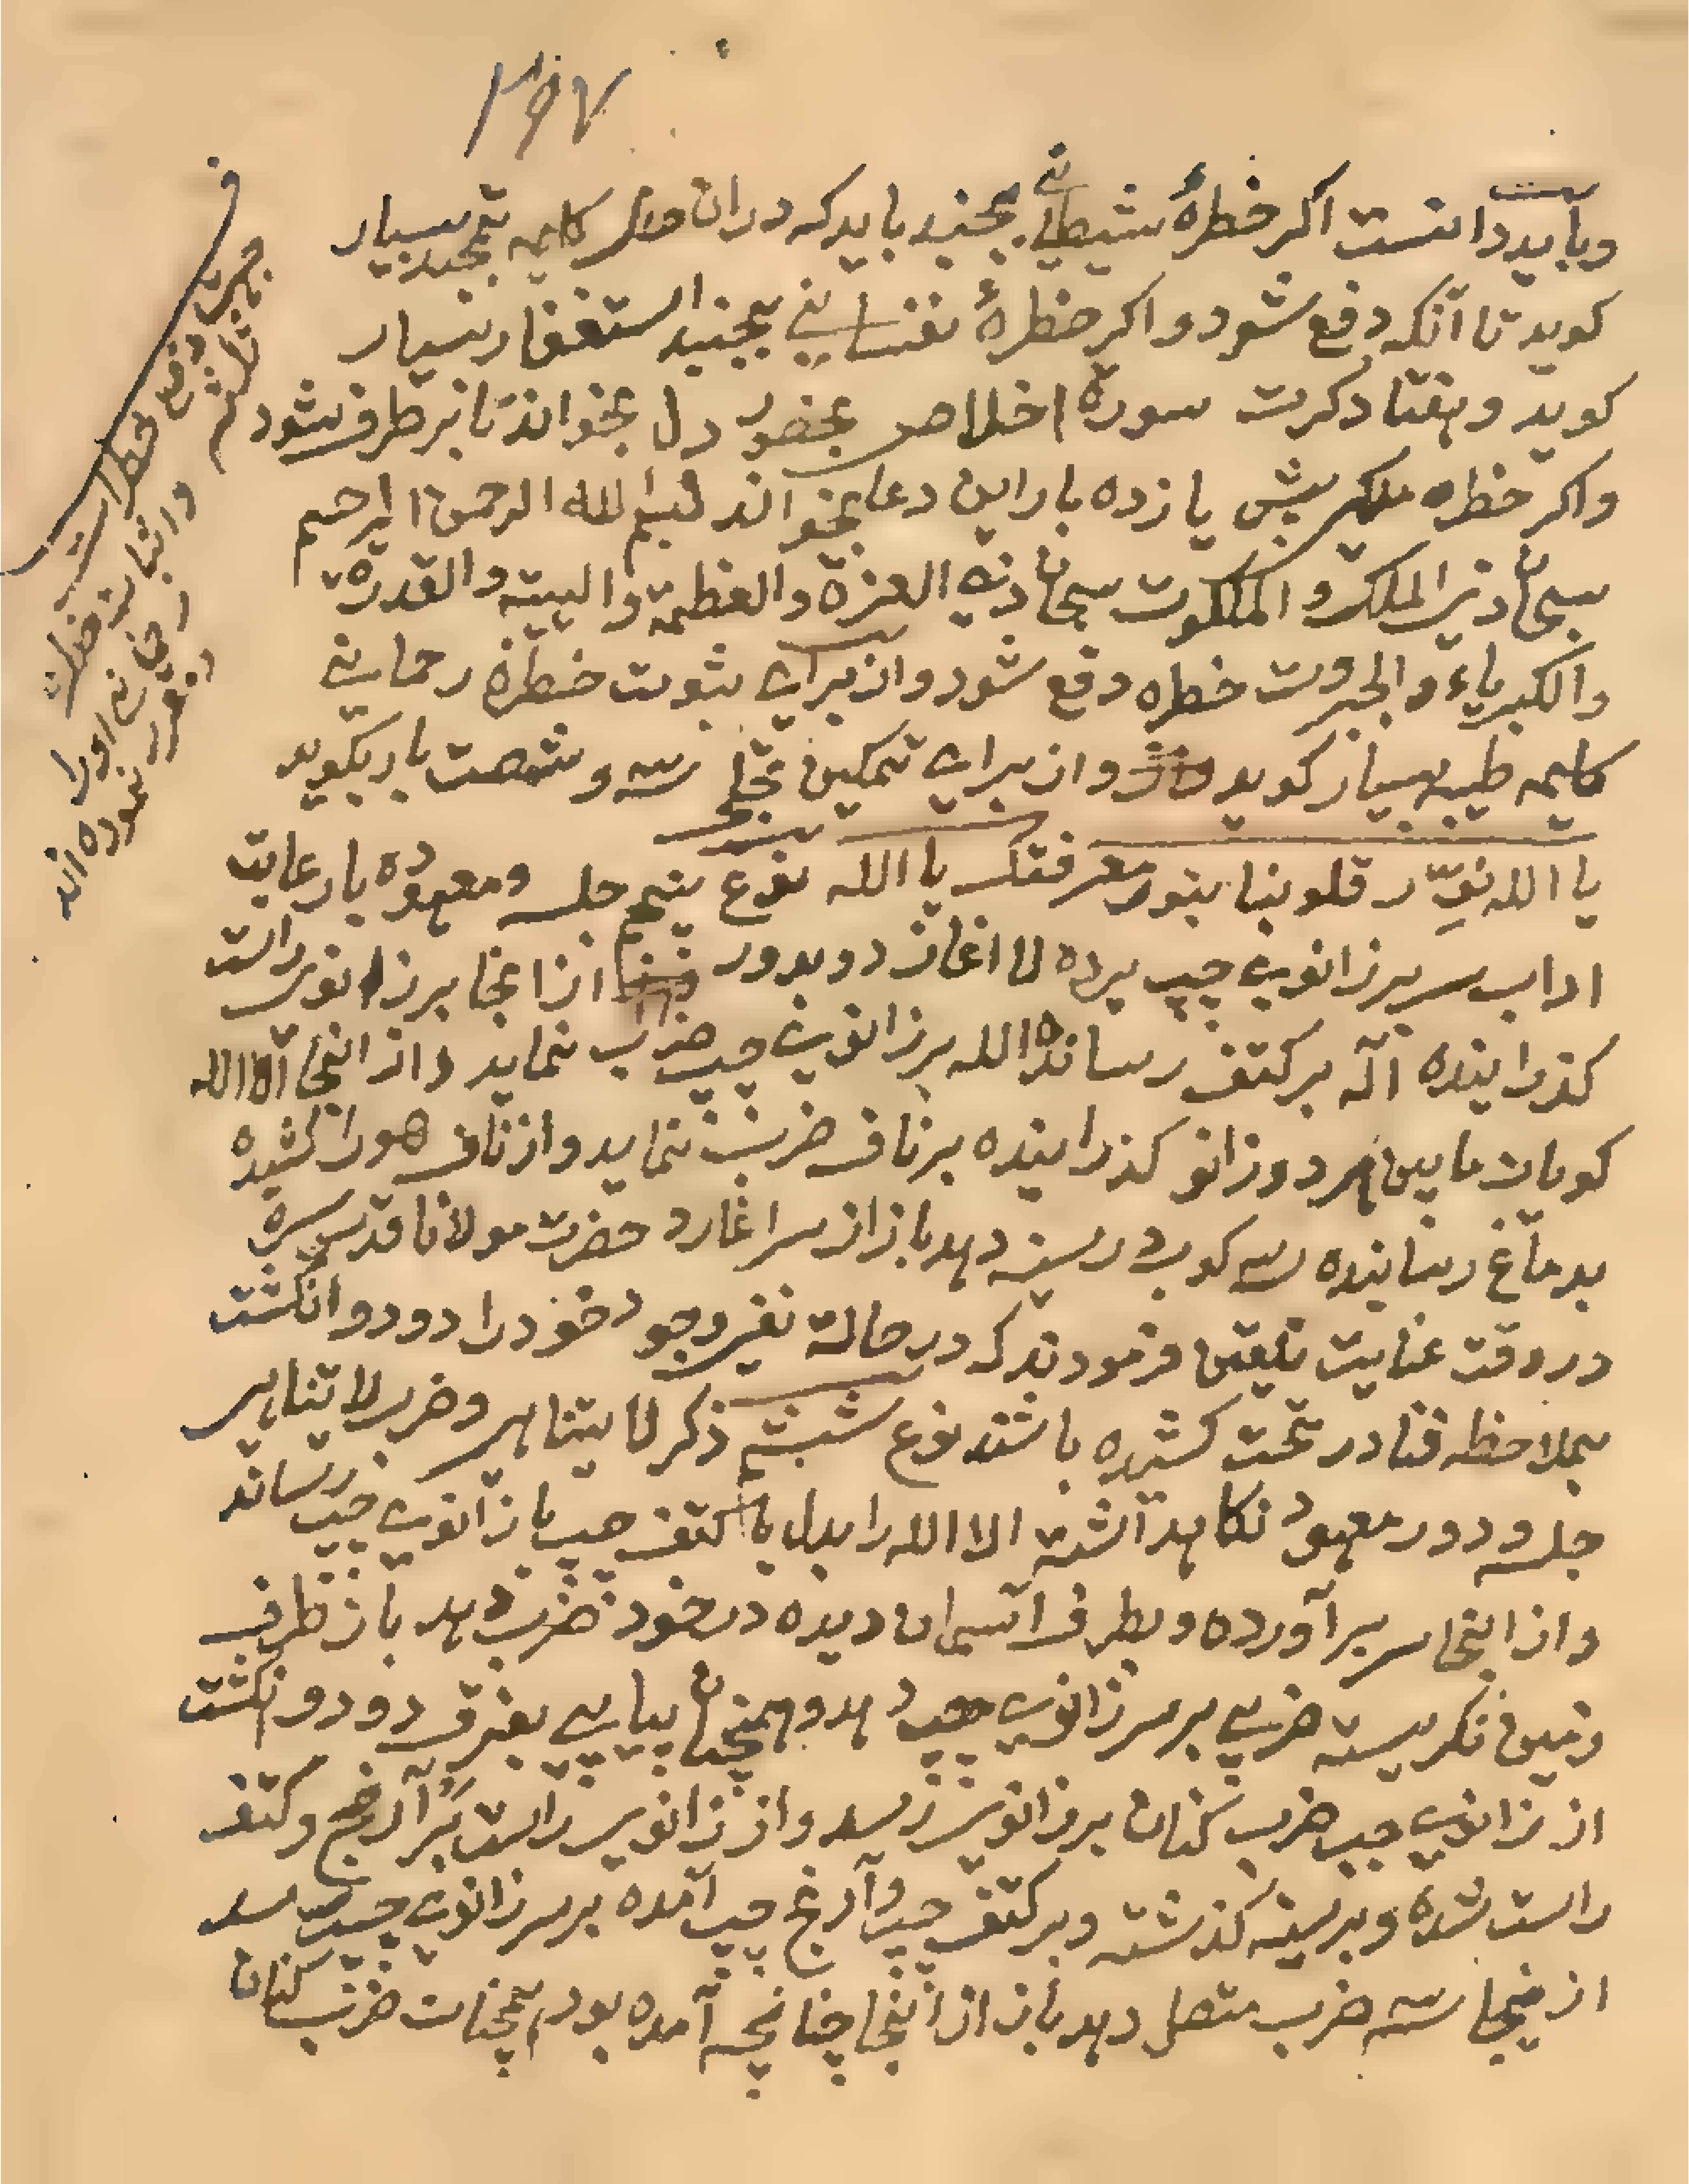 وباید دانست اکر خطرهٔ شیطانی بجنبد باید که دران کلیمه تمجید بسیار
کوید تا آنکه دفع شود و اکر خطرهٔ نفسانی بجنبد استغفار بسیار
کوید و هفتاد کرت سورة اخلاص بحضور دل بخواند تا برطرف شود
واکر خطره ملکی پیش یازده بار این دعا بخواند بسم الله الرحمن الرحیم
سبحان ذی الملک و الملکوت سبحان ذی العزة والعظمة والهیبته والقدرة
والکبریاء والجبروت خطره دفع شود و از برای ثبوت خطرهٔ رحمانی
کلیمه طیبه بسیار کوید و از برای تمکین تجلی سه و شصت بار بکوید
یا الله نوّر قلوبنا بنور معرفتک یا الله نوع پنجم جلسه ومعهوده با رعایت
اداب سر بر زانوی چپ برده لا اغاز د و بدور از انجا بر زانوی راست
کذرانیده اله بر کتف رسانده الله بر زانوی چپ ضرب نماید و از انجا الا الله
کویان مابین هر دو زانو کذرانیده بر ناف ضرب نماید و از ناف هو را کشیده
بدماغ رسانیده سه کوب در سینه دهد باز از سر اغازد حضرت مولانا قدس سره
در وقت عنایت تلقین فرمودند که در حالة نفی وجود خود را دو دو انکشت
بملاحظه فنا در تحت کشیده باشند نوع ششم ذکر لا یتناهی وضرب لا تناهی
جلسه و دور معهود نکاهداشته الا الله را بدل یا کتف چپ یا زانوی چپ رساند
و از انجا سر برآورده و بطرف اسمان دیده در خود ضرب دهد باز طرف
زمین نکریسته ضربی بر سر زانوی چپ دهد و همچنان پیاپی بفرق دو دو انکشت
از زانوی چپ ضرب کنان بر زانو رسد و از زانوی راست بر آرنج و کتف
راست شده و بر سینه کذشته و بر کتف چپ و آرنج چپ آمده بر سر زانوی چپ رسد
ازینجا سه ضرب متصل دهد باز از انجا چنانچه آمده بود همچنان ضرب کنان
جهت دفع خطرات